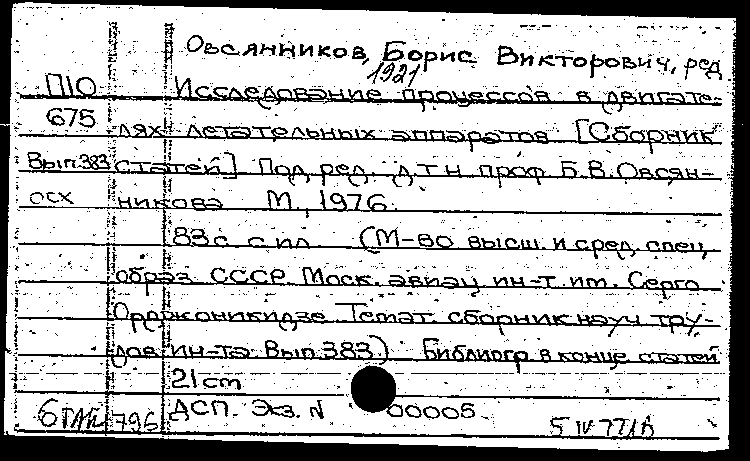 Овсянников, Борис Викторович, ред
1921
П10 Исследование процессов в двигате-
675 лях летательных аппаратов [Сборник
Вып.383 статей] Под ред. д.т.н проф Б.В.Овсян-
осх никова М., 1976.
83 с. с ил. (М-во высш. и сред. спец.
образ. СССР. Моск. авиац. ин-т. им. Серго
Орджоникидзе. Темат. сборник науч тру-
дов ин-та. Вып.383). Библиогр в конце статей
21 cm
796 ДСП. Экз. N 00005.
5 IV 77